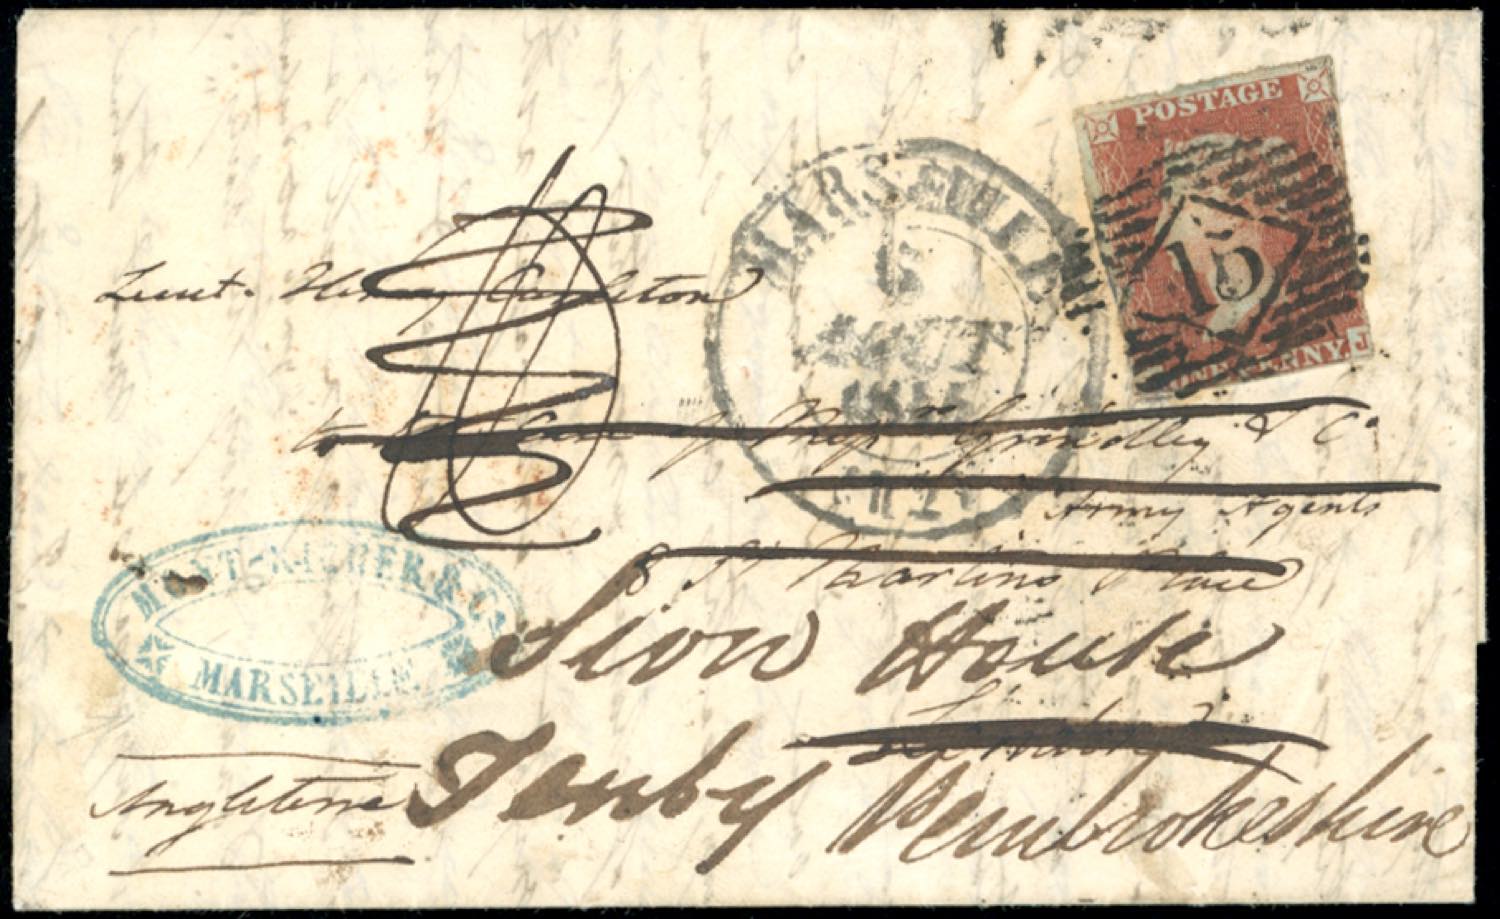 POSTAGE
15
ONE PENNY. J
MARSEILLE
5
AOUT
Lieut. Henry Carleton
to the Care of Messrs Grindlay & Co
Army Agents
8 St Martins Place
MARSEILLE
Sion House
London
Angleterre
Tenby Pembrokeshire